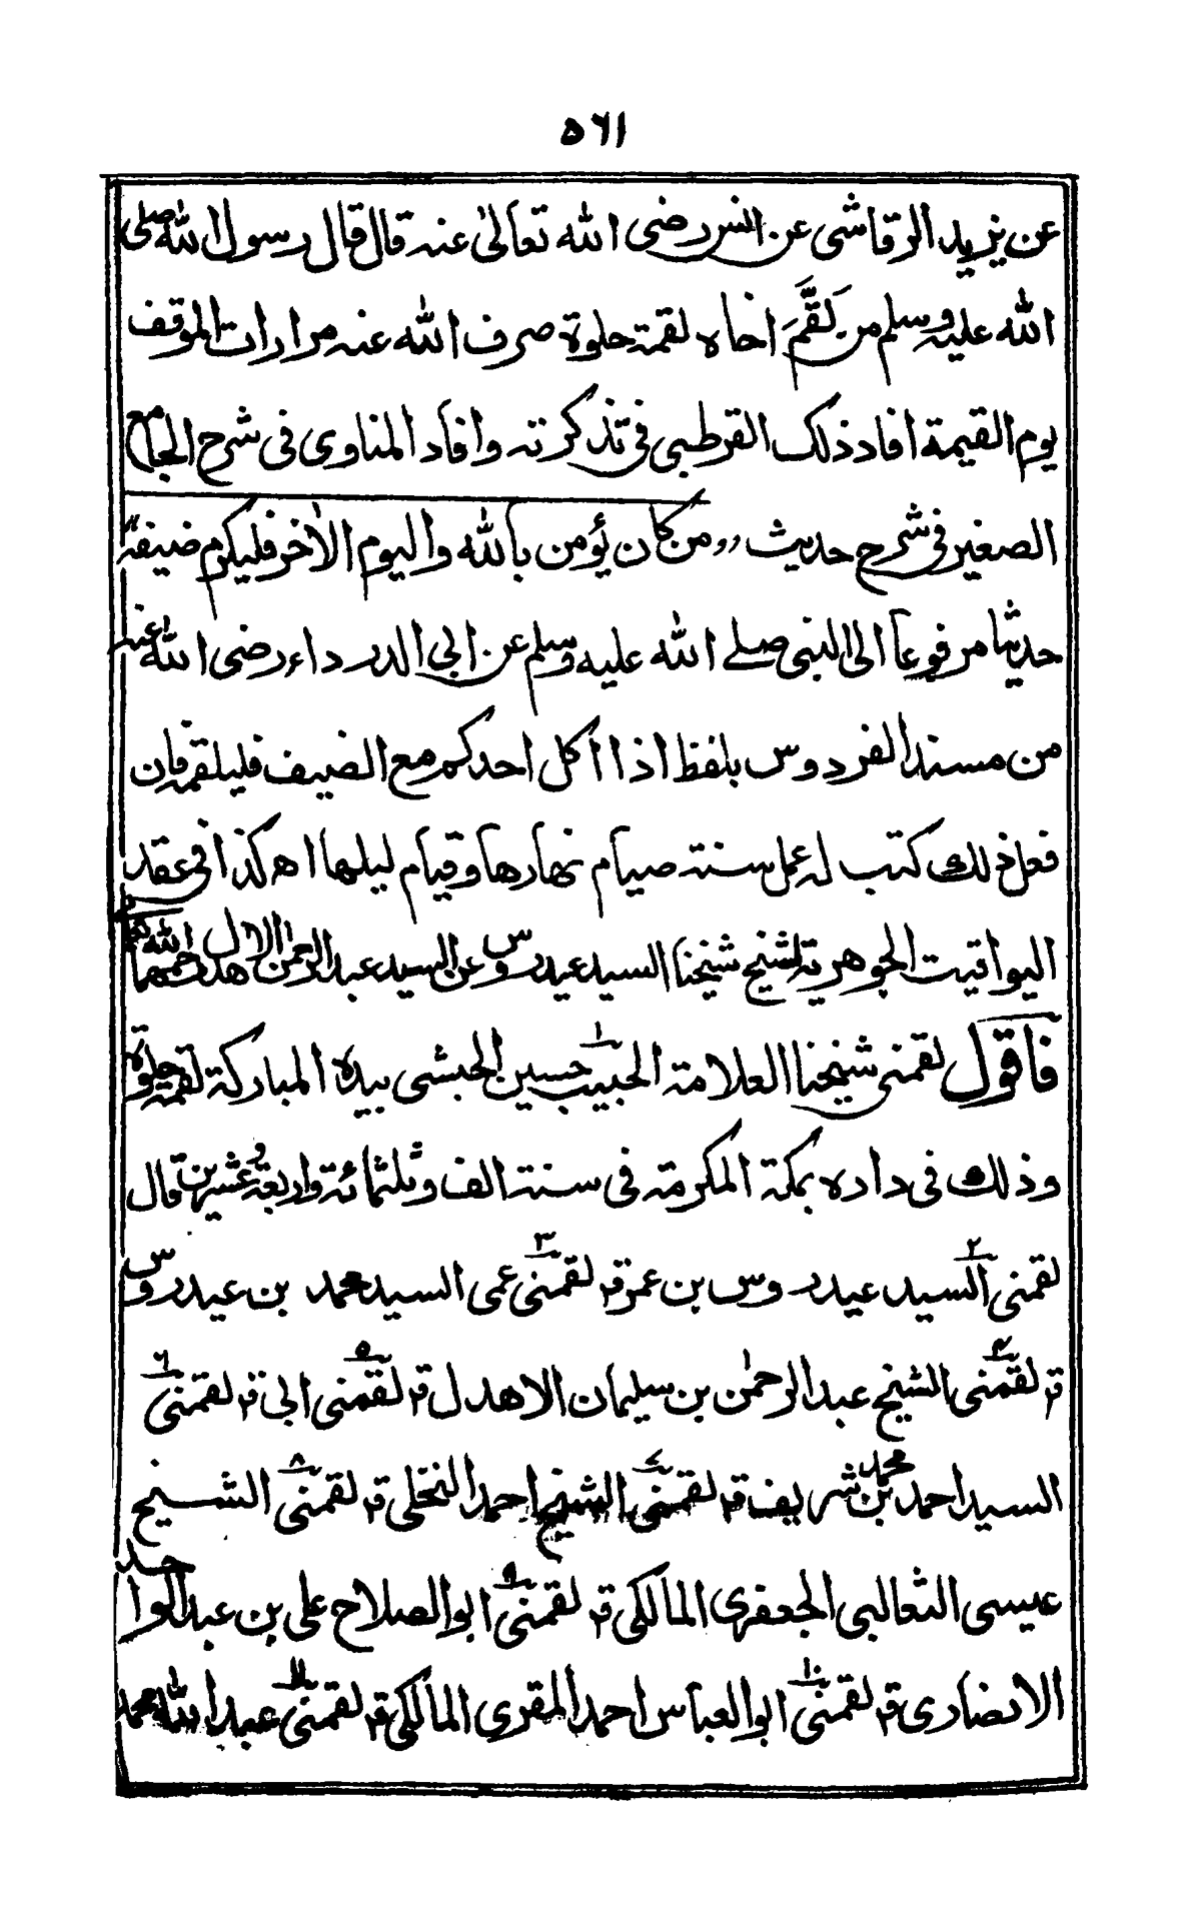 ٥٦١
عن يزيد الرقاشى عن انس رضى الله تعالىٰ عنه قال قال رسول الله صلى
الله عليه وسلم من لَقَّمَ اخاه لقمة حلوة صرف الله عنه مرارات الموقف
يوم القيمة افاد ذلك القرطبى فى تذكرته وافاد المناوى فى شرح الجامع
الصغير فى شرح حديث ،،من كان يؤمن بالله واليوم الاٰخر فليكرم ضيفه،،
حديثا مرفوعاً الى النبى صلے الله عليه وسلم عن ابى الدرداء رضى الله عنه
من مسند الفردوس بلفظ اذا اكل احدكم مع الضيف فليلقمه فان
فعل ذلك كتب له عمل سنة صيام نهارها وقيام ليلها اھ كذا فى عقد
اليواقيت الجوهرية لشيخ شيخنا السيد عيدروس عن السيد عبد الرحمٰن الاهدل رحمهما الله تعالى
فاقول لقمنى شيخنا العلامة الحبيب ١ حسين الحبشى بيده المباركة لقمة حلوة
وذلك فى داره بمكة المكرمة فى سنة الف وثلثمائة واربعة وعشرين قال
لقمنى ٢ السيد عيدروس بن عمر قال لقمنى ٣ عمى السيد محمد بن عيدروس
قال لقمنى ٤ الشيخ عبد الرحمٰن بن سليمان الاهدل قال لقمنى ٥ ابى قال لقمنى ٦
السيد احمد بن محمد شريف قال لقمنى ٧ الشيخ احمد النخلى قال لقمنى ٨ الشيخ
عيسى الثعالبى الجعفرى المالكى قال لقمنى ٩ ابو الصلاح على بن عبد الواحد
الانصارى قال لقمنى ١٠ ابو العباس احمد المقرى المالكى قال لقمنى ١١ عبد الله محمد